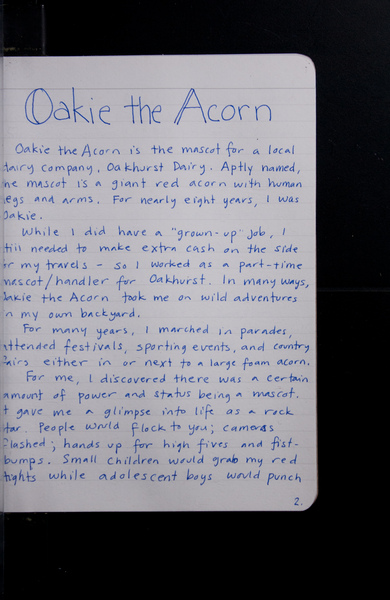 Oakie the Acorn
Oakie the Acorn is the mascot for a local
dairy company, Oakhurst Dairy. Aptly named,
he mascot is a giant red acorn with human
legs and arms. For nearly eight years, I was
Oakie.
While I did have a "grown-up" job, I
till needed to make extra cash on the side
or my travels - so I worked as a part-time
mascot/handler for Oakhurst. In many ways,
Oakie the Acorn took me on wild adventures
n my own backyard.
For many years, I marched in parades,
attended festivals, sporting events, and country
fairs either in or next to a large foam acorn.
For me, I discovered there was a certain
amount of power and status being a mascot.
t gave me a glimpse into life as a rock
tar. People would flock to you; cameras
flashed; hands up for high fives and fist-
bumps. Small children would grab my red
tights while adolescent boys would punch
2.